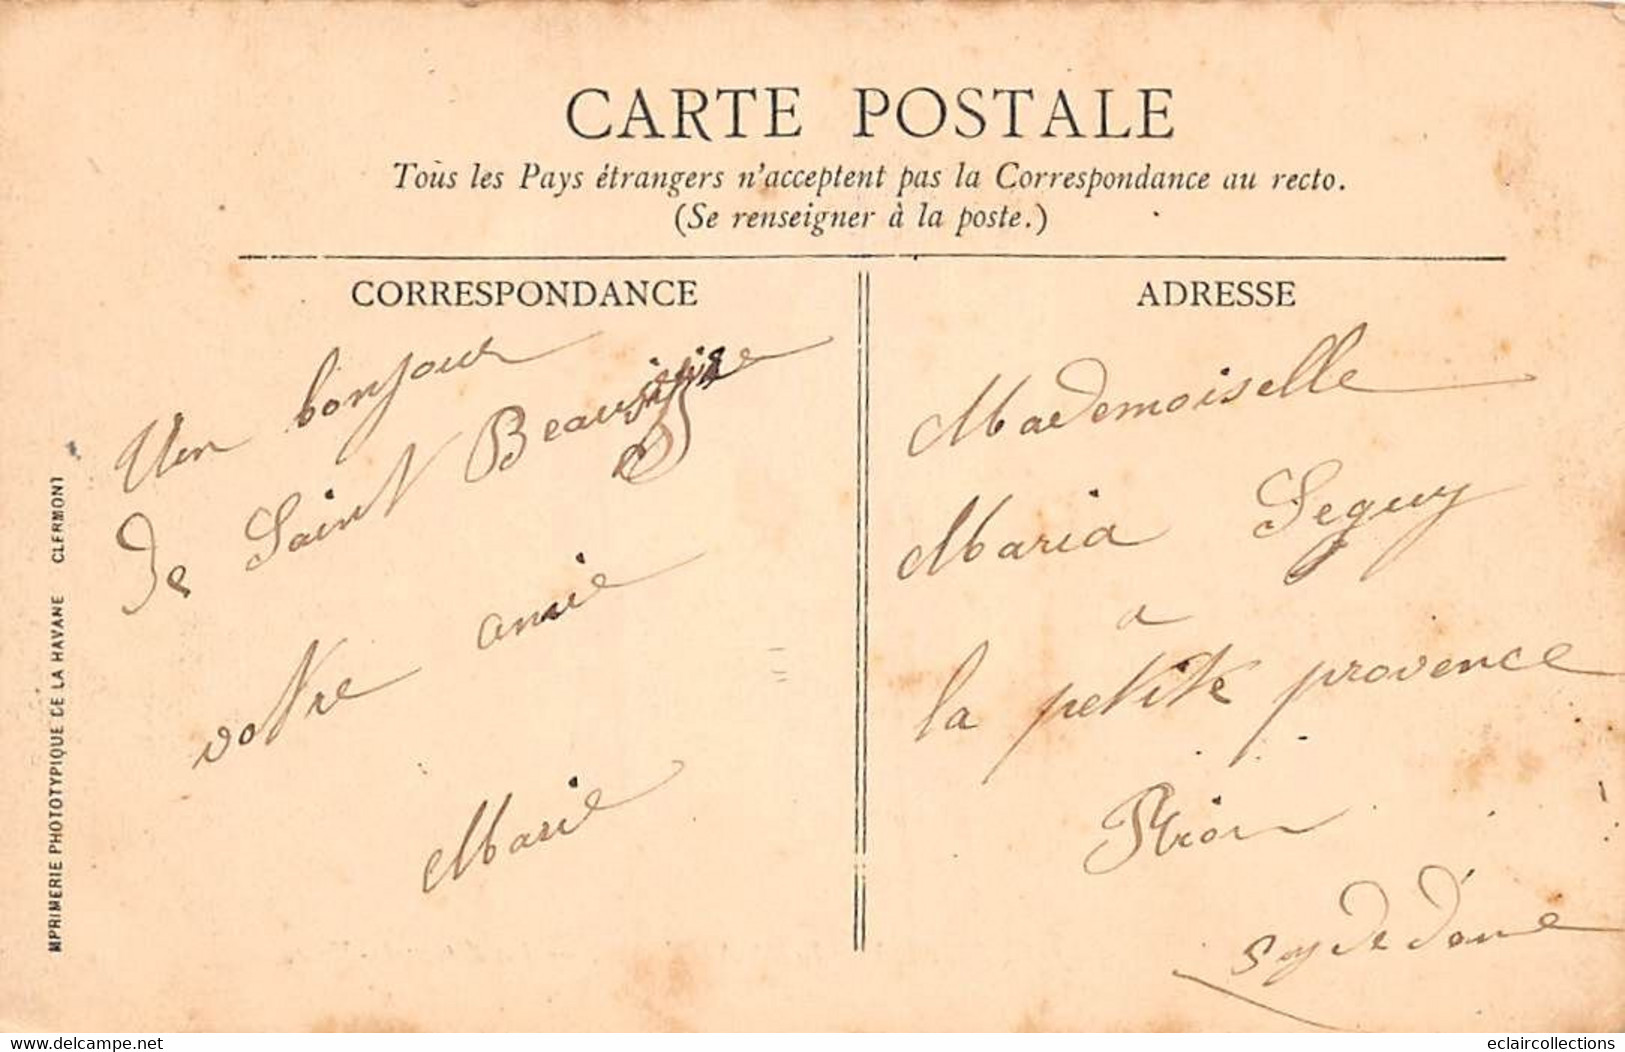 CARTE POSTALE
Tous les Pays étrangers n'acceptent pas la Correspondance au recto.
(Se renseigner à la poste.)
CORRESPONDANCE
Un bonjour
de Saint Beauzire
votre amie
Marie
ADRESSE
Mademoiselle
Maria Seguy
a
la petite provence
Riom
MPRIMERIE PHOTOTYPIQUE DE LA HAVANE CLERMONT
www.delcampe.net
eclaircollections